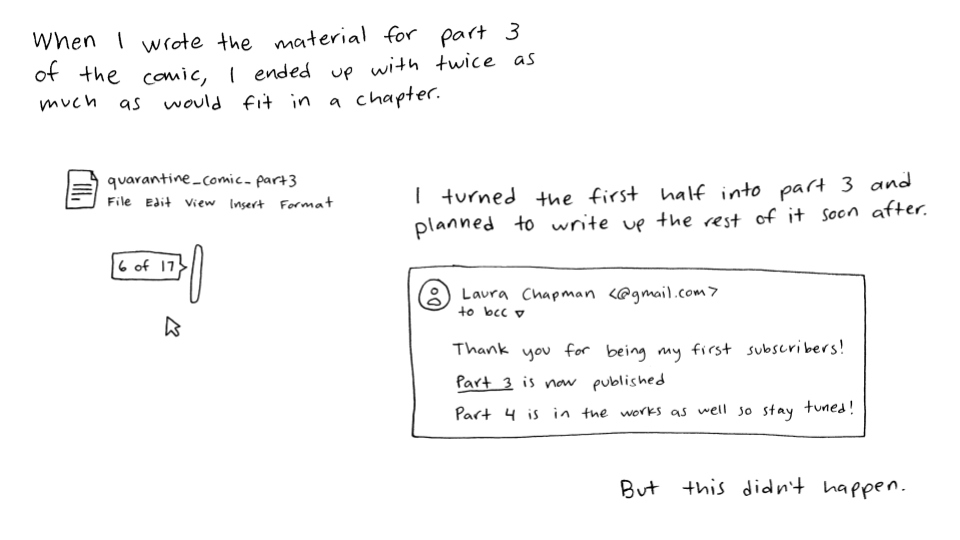 When I wrote the material for part 3
of the comic, I ended up with twice as
much as would fit in a chapter.
quarantine_comic_part3
File Edit View Insert Format
6 of 17
I turned the first half into part 3 and
planned to write up the rest of it soon after.
Laura Chapman <@gmail.com>
to bcc
Thank you for being my first subscribers!
Part 3 is now published
Part 4 is in the works as well so stay tuned!
But this didn't happen.